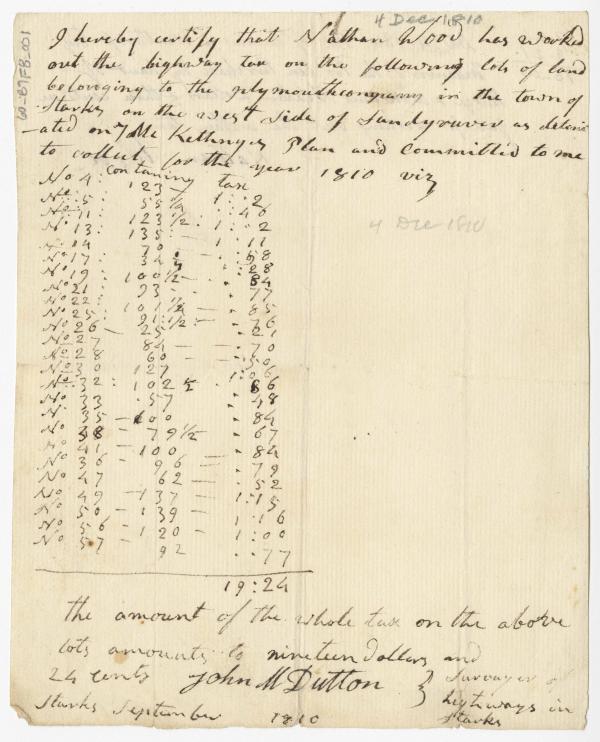 4 Dec 1810
I hereby certify that Nathan Wood has worked
out the highway tax on the following lots of land
belonging to the plymouth company in the town of
Starks on the west side of Sandy river as
on Plan and Committed to me
to collect for the year 1810 viz
containing tax
No 4 : 123 – 1 : 2
No 5 55
No 11 : 123 1/2 : 1 : 2
4 Dec 1810
No 13 : 135 – 1 11
No 14 70 58
No 17 34 28
No 19 : 100 1/2 – 84
No 21 93 – 77
No 22 : 101 85
No 25 : 91 1/2 – 76
No 26 – 25 21
No 27 84 – 70
No 28 60 – 50
No 30 127 1 : 06
No 32 : 102 86
No 33 57 48
No 35 – 100 84
No 38 – 79 1/2 67
No 41 – 100 – 84
No 36 – 96 – 79
No 47 62 – 52
No 49 – 137 – 1 : 15
No 50 – 139 – 1 16
No 56 – 120 – 1 : 00
No 57 – 92 77
19 : 24
the amount of the whole tax on the above
lots amounts to nineteen Dollars and
24 cents John M Dutton } Survayer of
highways in
Starks September 1810 Starks